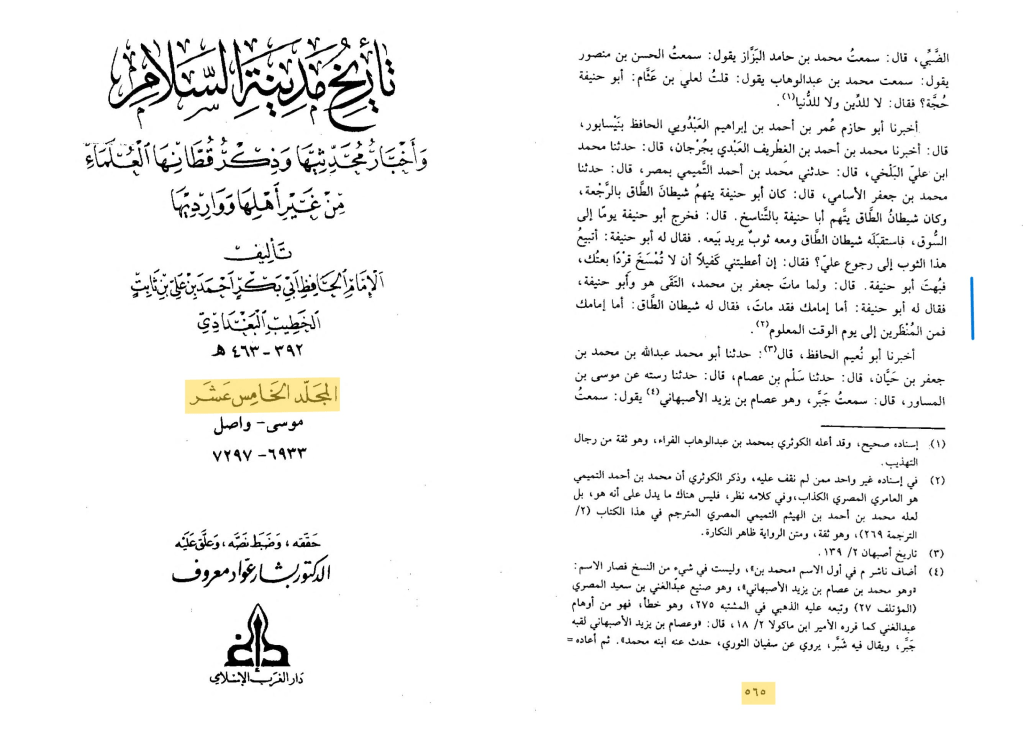 تأريخ مدينة السلام
وأخبار محدثيها وذكر قطانها العلماء
من غير أهلها ووارديها
تأليف
الإمام الحافظ أبي بكر أحمد بن علي بن ثابت
الخطيب البغدادي
٣٩٢ - ٤٦٣ هـ
المجلد الخامس عشر
موسى - واصل
٦٩٣٣ - ٧٢٩٧
حققه، وضبط نصه، وعلق عليه
الدكتور بشار عواد معروف
دار الغرب الإسلامي
الضَّبِّي، قال: سمعتُ محمد بن حامد البَزَّاز يقول: سمعتُ الحسن بن منصور
يقول: سمعت محمد بن عبدالوهاب يقول: قلتُ لعلي بن عَثَّام: أبو حنيفة
حُجَّة؟ فقال: لا للدِّين ولا للدُّنيا(١).
أخبرنا أبو حازم عُمر بن أحمد بن إبراهيم العَبْدُويي الحافظ بنَيْسابور،
قال: أخبرنا محمد بن أحمد بن الغطريف العَبْدي بجُرْجان، قال: حدثنا محمد
ابن عليّ البَلْخي، قال: حدثني محمد بن أحمد التَّميمي بمصر، قال: حدثنا
محمد بن جعفر الأسامي، قال: كان أبو حنيفة يتهمُ شيطانَ الطَّاق بالرَّجْعة،
وكان شيطانُ الطَّاق يتَّهم أبا حنيفة بالتَّناسخ. قال: فخرج أبو حنيفة يومًا إلى
السُّوق، فاستقبَلَه شيطان الطَّاق ومعه ثوبٌ يريد بَيعه. فقال له أبو حنيفة: أتبيعُ
هذا الثوب إلى رجوع عليّ؟ فقال: إن أعطيتني كَفيلًا أن لا تُمْسَخَ قِرْدًا بعتُك،
فبُهتَ أبو حنيفة. قال: ولما ماتَ جعفر بن محمد، التَقَى هو وأبو حنيفة،
فقال له أبو حنيفة: أما إمامك فقد ماتَ، فقال له شيطان الطَّاق: أما إمامك
فمن المُنْظَرين إلى يوم الوقت المعلوم(٢).
أخبرنا أبو نُعيم الحافظ، قال(٣): حدثنا أبو محمد عبدالله بن محمد بن
جعفر بن حَيَّان، قال: حدثنا سَلْم بن عصام، قال: حدثنا رسته عن موسى بن
المساور، قال: سمعتُ جَبَّر، وهو عصام بن يزيد الأصبهاني(٤) يقول: سمعتُ
(١) إسناده صحيح، وقد أعله الكوثري بمحمد بن عبدالوهاب الفراء، وهو ثقة من رجال
التهذيب.
(٢) في إسناده غير واحد ممن لم نقف عليه، وذكر الكوثري أن محمد بن أحمد التميمي
هو العامري المصري الكذاب، وفي كلامه نظر، فليس هناك ما يدل على أنه هو، بل
لعله محمد بن أحمد بن الهيثم التميمي المصري المترجم في هذا الكتاب (٢/
الترجمة ٢٦٩)، وهو ثقة، ومتن الرواية ظاهر النكارة.
(٣) تاريخ أصبهان ٢/ ١٣٩.
(٤) أضاف ناشر م في أول الاسم «محمد بن»، وليست في شيء من النسخ فصار الاسم:
«وهو محمد بن عصام بن يزيد الأصبهاني»، وهو صنيع عبدالغني بن سعيد المصري
(المؤتلف ٢٧) وتبعه عليه الذهبي في المشتبه ٢٧٥، وهو خطأ، فهو من أوهام
عبدالغني كما قرره الأمير ابن ماكولا ٢/ ١٨، قال: «وعصام بن يزيد الأصبهاني لقبه
جَبَّر، ويقال فيه شَبَّر، يروي عن سفيان الثوري، حدث عنه ابنه محمد». ثم أعاده =
٥٦٥